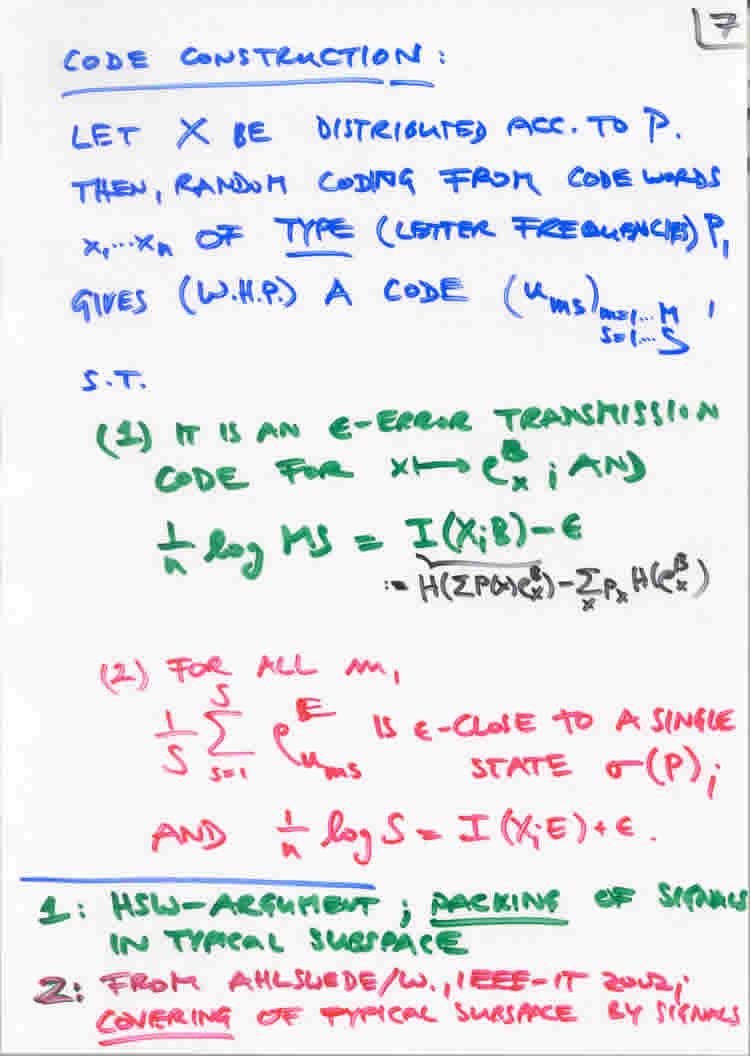 7
CODE CONSTRUCTION:
LET X BE DISTRIBUTED ACC. TO P.
THEN, RANDOM CODING FROM CODE WORDS
x₁...xₙ OF TYPE (LETTER FREQUENCIES) P,
GIVES (W.H.P.) A CODE (u_ms)_{m=1...M, s=1...S},
S.T.
(1) IT IS AN ε-ERROR TRANSMISSION
CODE FOR x ↦ ρ_x^B ; AND
1/n log MS = I(X;B) - ε
:= H(∑P(x)ρ_x^B) - ∑_x P_x H(ρ_x^B)
(2) FOR ALL m,
1/S ∑_{s=1}^S ρ_{u_ms}^E IS ε-CLOSE TO A SINGLE
STATE σ(P);
AND 1/n log S = I(X;E) + ε.
1: HSW-ARGUMENT; PACKING OF SIGNALS
IN TYPICAL SUBSPACE
2: FROM AHLSWEDE/W., IEEE-IT 2002;
COVERING OF TYPICAL SUBSPACE BY SIGNALS